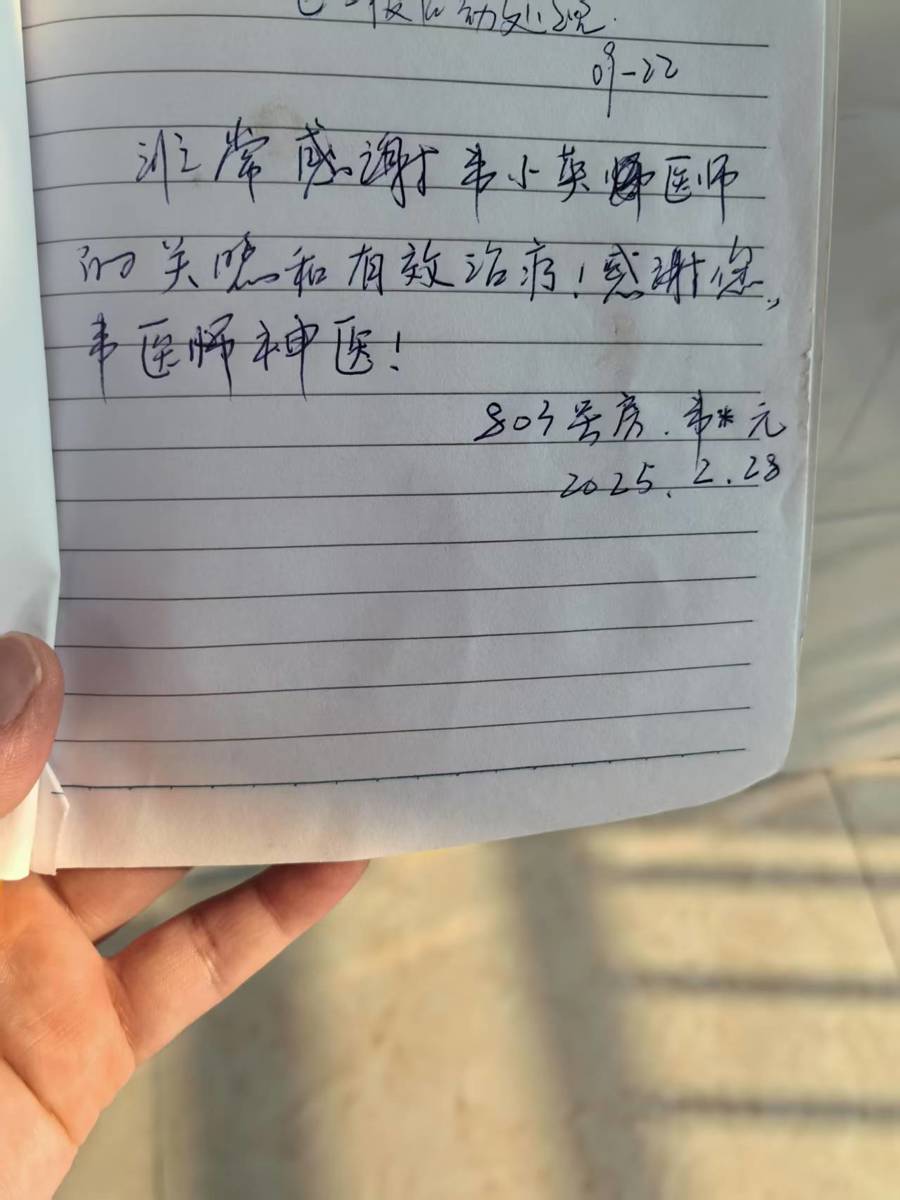 处理.
09-22
非常感谢韦小英医师
的关照和有效治疗！感谢您，
韦医师神医！
803号房.韦*元
2025.2.28